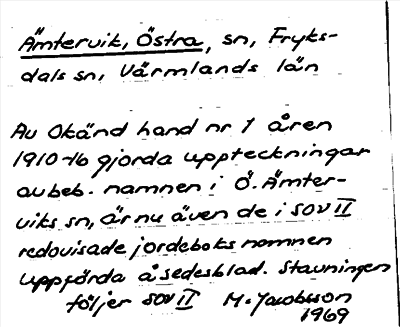 Ämtervik, Östra, sn, Fryks-
dals sn, Värmlands län
Av Okänd hand nr 1 åren
1910-16 gjorda uppteckningar
av beb. namnen i Ö. Ämter-
viks sn, är nu även de i SOV II
redovisade jordeboksnamnen
uppförda å sedesblad. Stavningen
följer SOV II M. Jacobsson
1969